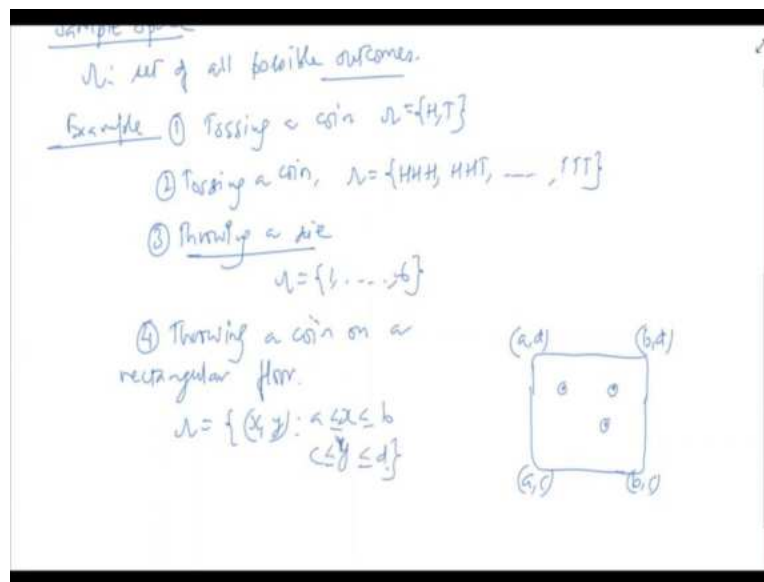 Sample Space
Ω: set of all possible outcomes.
Example ① Tossing a coin Ω={H,T}
② Tossing a coin, Ω={HHH, HHT, ----, TTT}
③ Throwing a die
Ω={1, ....,6}
④ Throwing a coin on a
rectangular floor.
Ω={(x,y): a≤x≤b
c≤y≤d}
(a,d) (b,d)
(a,c) (b,c)